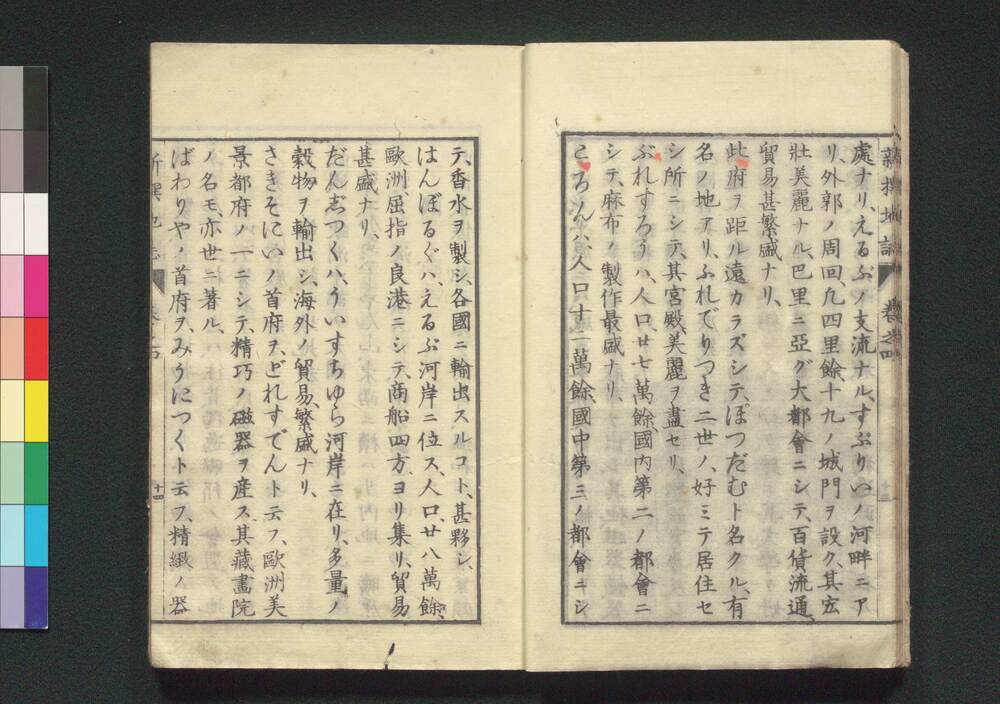 新撰地誌 卷之四
處ナリ、えるぶノ支流ナル、すぷりいノ河畔ニア
リ、外郭ノ周囘、凡四里餘十九ノ城門ヲ設ク、其宏
壯美麗ナル、巴里ニ亞グ大都會ニシテ、百貨流通、
貿易甚繁盛ナリ、
此府ヲ距ル遠カラズシテ、ぼつだむト名クル、有
名ノ地アリ、ふれでりつき二世ノ、好ミテ居住セ
シ所ニシテ、其宮殿、美麗ヲ盡セリ、
ぶれすろうハ、人口、廿七萬餘、國内第二ノ都會ニ
シテ、麻布ノ製作最盛ナリ、
ころんハ、人口十二萬餘、國中第三ノ都會ニシ
テ、香水ヲ製シ、各國ニ輸出スルコト、甚夥シ、
はんぼるぐハ、えるぶ河岸ニ位ス、人口、廿八萬餘、
歐洲、屈指ノ良港ニシテ、商船四方ヨリ集リ、貿易
甚盛ナリ、
だんじつくハ、ういすちゆら河岸ニ在リ、多量ノ
穀物ヲ輸出シ、海外ノ貿易、繁盛ナリ、
さきそにいノ首府ヲ、どれすでんト云フ、歐洲美
景都府ノ一ニシテ、精巧ノ磁器ヲ産ス、其藏畫院
ノ名モ、亦世ニ著ル、
ばわりやノ首府ヲ、みうにつくト云フ、精緻ノ器
新撰地誌
十四